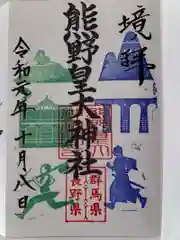 境拝
熊野皇大神社
令和元年十月八日
群馬県
長野県